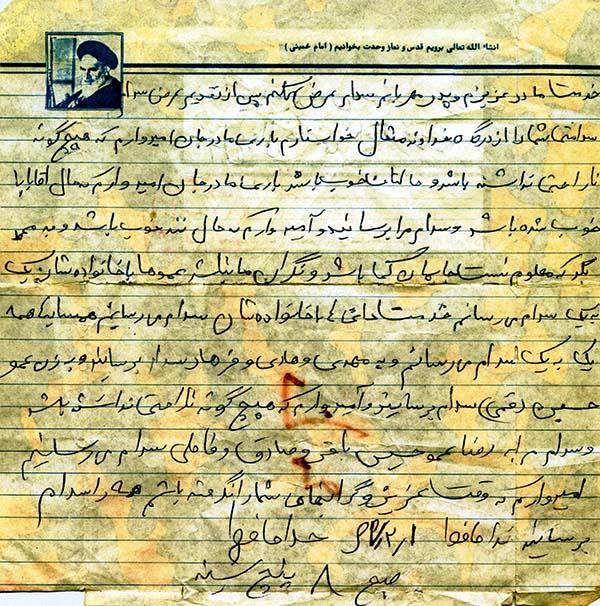 انشاء الله تعالی برویم قدس و نماز وحدت بخوانیم (امام خمینی)
خدمت مادر عزیزم و پدر مهربانم سلام عرض میکنم پس از تقدیم عرض سلام
سلامتی شما را از درگاه خداوند متعال خواستارم باری مادرجان امیدوارم که هیچ گونه
ناراحتی نداشته باشد و حالتان خوب باشد باری مادرجان امیدوارم که حال آقابابا
خوب شده باشد و سلام مرا برسانید و امیدوارم که حال ننه خوب باشد و به
بگو که معلوم نیست جایمان کجا باشد و نگران ما نباشد عموها با خانواده شان یک
به یک سلام می رسانم خدمت با خانواده شان سلام می رسانم همسایه همه
یک به یک سلام می رسانم و به مهدی و هادی و فرهاد سلام برسانید و به زن عمو
حسین (قمی) سلام برسانید و امیدوارم که هیچ گونه ناراحتی نداشته باشد
و سلام مرا به رضا عمو حسین باقر و صادق و سلام می رسانم
امیدوارم که وقت عزیز و گرانبهای شما را نگرفته باشم همه را سلام
برسانید خداحافظ خداحافظ
صبح ۸ پنج شنبه